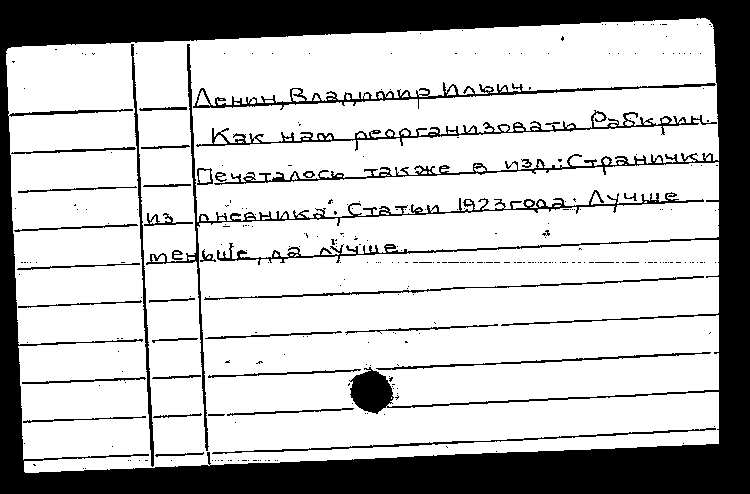 Ленин, Владимир Ильич.
Как нам реорганизовать Рабкрин.
Печаталось также в изд.: Странички
из дневника; Статьи 1923 года; Лучше
меньше, да лучше.